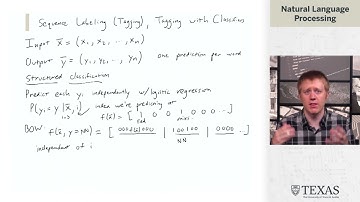 Sequence Labeling (Tagging), Tagging with Classifiers
Input x̄ = (x₁, x₂, ..., xₙ)
Output ȳ = (y₁, y₂, ..., yₙ) one prediction per word
Structured classification
Predict each yᵢ independently w/logistic regression
P(yᵢ = y | x̄, i) index we're predicting at
f(x̄) = [ 1 0 0 1 0 0 0 ...]
BOW: f(x̄, y = NN) = [ | 100100 | 0000 ...]
NN
independent of i
Natural Language
Processing
TEXAS